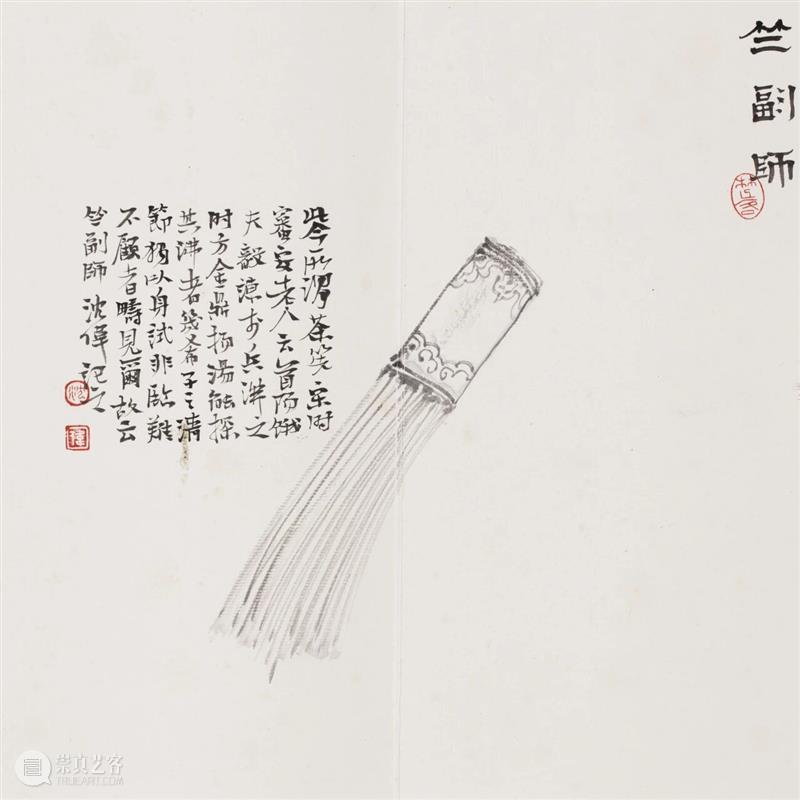 竺副師
此今所謂茶筅宋时
審安老人云首陽餓
夫毅諫于兵沸之
时方金鼎揚湯能探
其沸者幾希子之清
節獨以身試非臨難
不顧者疇見爾故云
竺副師 沈偉記之
沈
偉
崇真艺客
TRUEART.COM